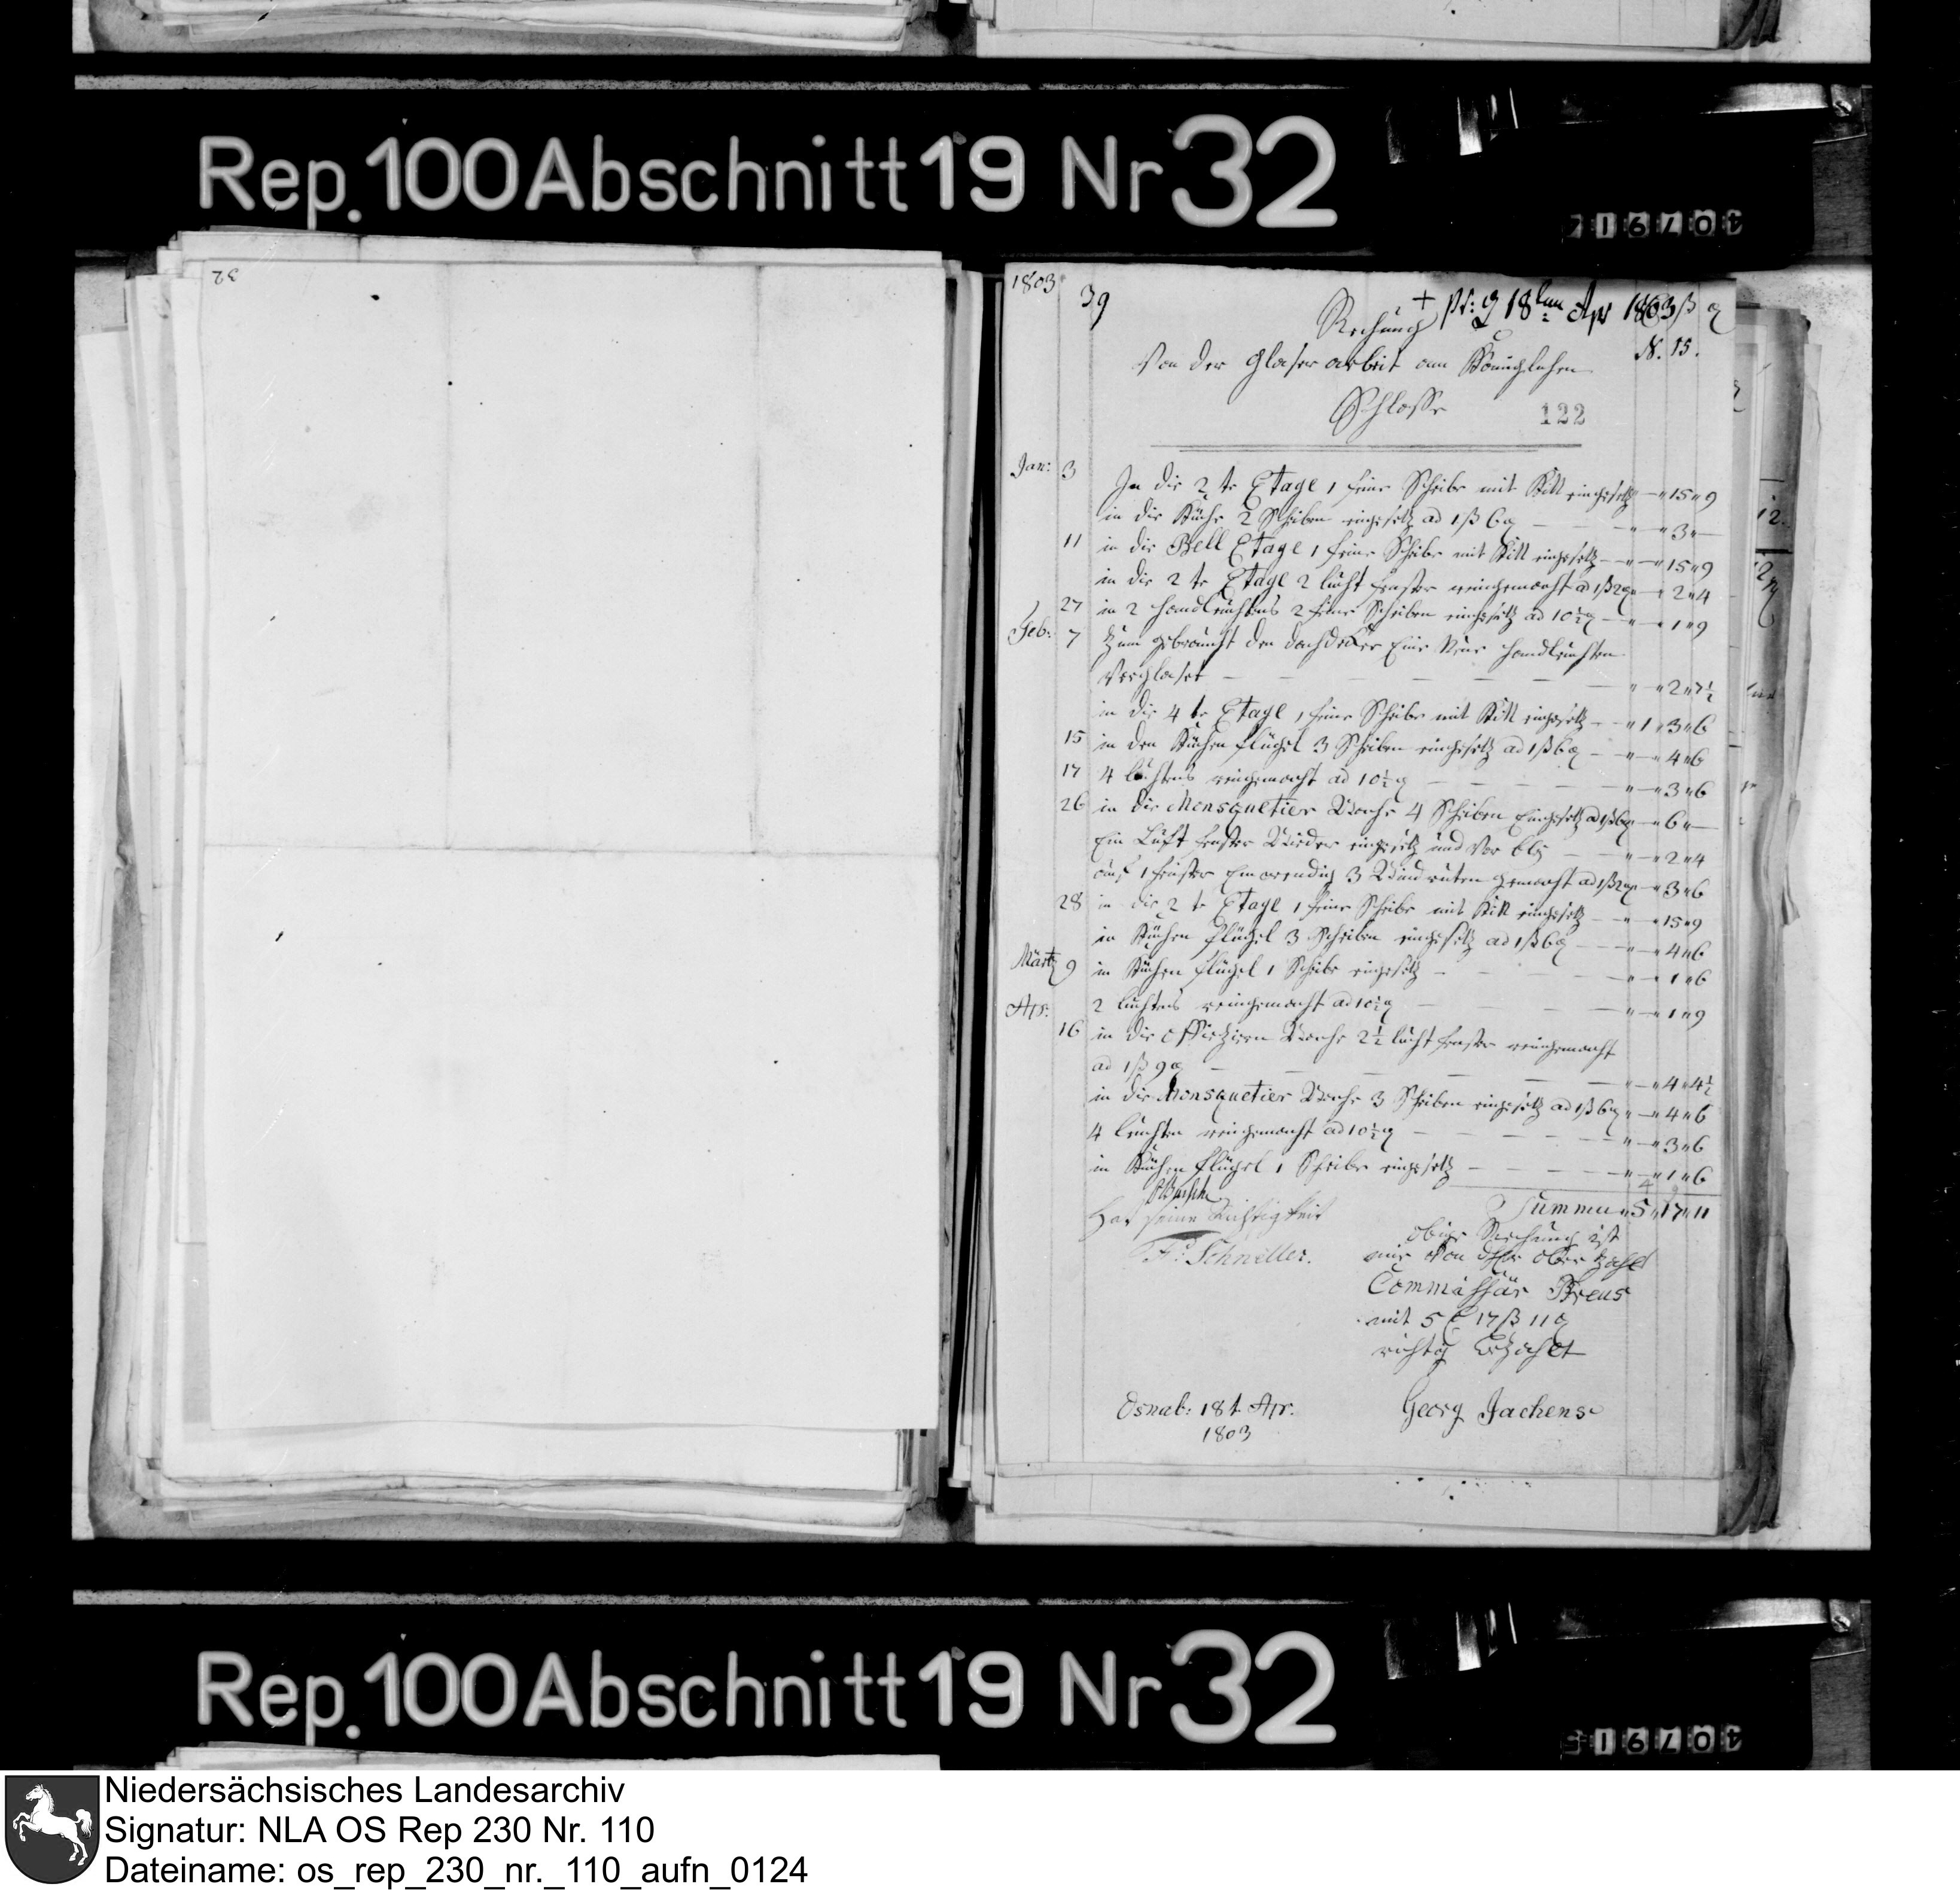 Rep. 100 Abschnitt 19 Nr 32
32
1803
39
+ pr: 18ten Apr 1803 ß
N. 15.
Rechnung
Von der glaser arbeit am Königlichen
Schlosse
122
Jan: 3 In die 2te Etage 1 feine Scheibe mit Kitt eingesetz — 15 „ 9
in die Küche 2 Scheiben eingesetz ad 1 ß 6 ₰ — „ 3 „ —
11 in die Bell Etage 1 feine Scheibe mit Kitt eingesetz — 15 „ 9
in die 2te Etage 2 lucht fenster reingemacht ad 1 ß 2 ₰ „ 2 „ 4
27 in 2 handleuchtens 2 feine Scheiben eingesetz ad 10 ½ ₰ — „ 1 „ 9
Feb: 7 Zum gebraucht den dachdeker Eine Neue handleuchten
Verglaset — „ 2 „ 7 ½
in die 4te Etage 1 feine Scheibe mit Kitt eingesetz — „ 1 „ 3 „ 6
15 in den Küchen flügel 3 Scheiben eingesetz ad 1 ß 6 ₰ — „ 4 „ 6
17 4 lüchtens reingemacht ad 10 ½ ₰ — „ 3 „ 6
26 in die Monsquetier Wache 4 Scheiben Eingesetz ad 1 ß 6 ₰ „ 6 „ —
Ein Luft fenster Wieder eingesetz und Ver — „ 2 „ 4
auf 1 fenster Einwendig 3 Windruten gemacht ad 1 ß 2 ₰ „ 3 „ 6
28 in die 2te Etage 1 feine Scheibe mit Kitt eingesetz — „ 15 „ 9
in Küchen flügel 3 Scheiben eingesetz ad 1 ß 6 ₰ — „ 4 „ 6
Märtz 9 in Küchen flügel 1 Scheibe eingesetz — „ 1 „ 6
Apr: 2 luchtens reingemacht ad 10 ½ ₰ — „ 1 „ 9
16 in die officiren Wache 2 ½ lucht fenster reingemacht
ad 1 ß 9 ₰ — „ 4 „ 4 ½
in die Monsquetier Wache 3 Scheiben eingesetz ad 1 ß 6 ₰ „ 4 „ 6
4 leuchten reingemacht ad 10 ½ ₰ — „ 3 „ 6
in Küchen flügel 1 Scheibe eingesetz — „ 1 „ 6
Summa „ 5 „ 17 „ 11
Hat seine Richtigkeit
F. Schneller.
obige Rechnung ist
mir von
Commissär Preus
mit 5 17 ß 11 ₰
richtig Bezahlt
Osnab: 18t Apr.
1803
Georg Jachens
Rep. 100 Abschnitt 19 Nr 32
Niedersächsisches Landesarchiv
Signatur: NLA OS Rep 230 Nr. 110
Dateiname: os_rep_230_nr._110_aufn_0124